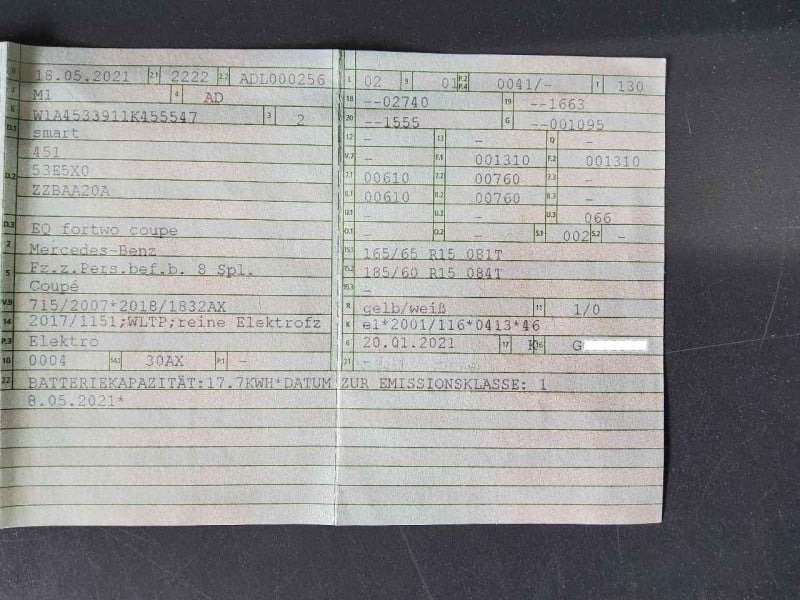 B 18.05.2021 2.1 2222 2.2 ADL000256
J M1 4 AD
E W1A4533911K455547 3 2
D.1 smart
D.2 451
53E5X0
ZZBAA20A
D.3 EQ fortwo coupe
2 Mercedes-Benz
5 Fz.z.Pers.bef.b. 8 Spl.
Coupé
V.9 715/2007*2018/1832AX
14 2017/1151;WLTP;reine Elektrofz
P.3 Elektro
10 0004 14.1 30AX P.1 -
L 02 9 01 P.2 P.4 0041/- T 130
18 --02740 19 --1663
20 --1555 G --001095
12 - 13 - Q -
V.7 - F.1 001310 F.2 001310
7.1 00610 7.2 00760 7.3 -
8.1 00610 8.2 00760 8.3 -
U.1 - U.2 - U.3 066
O.1 - O.2 - S.1 002 S.2 -
15.1 165/65 R15 081T
15.2 185/60 R15 084T
15.3 -
R gelb/weiß 11 1/0
K e1*2001/116*0413*46
6 20.01.2021 17 K 16 G
21 -
22 BATTERIEKAPAZITÄT:17.7KWH*DATUM ZUR EMISSIONSKLASSE: 1
8.05.2021*